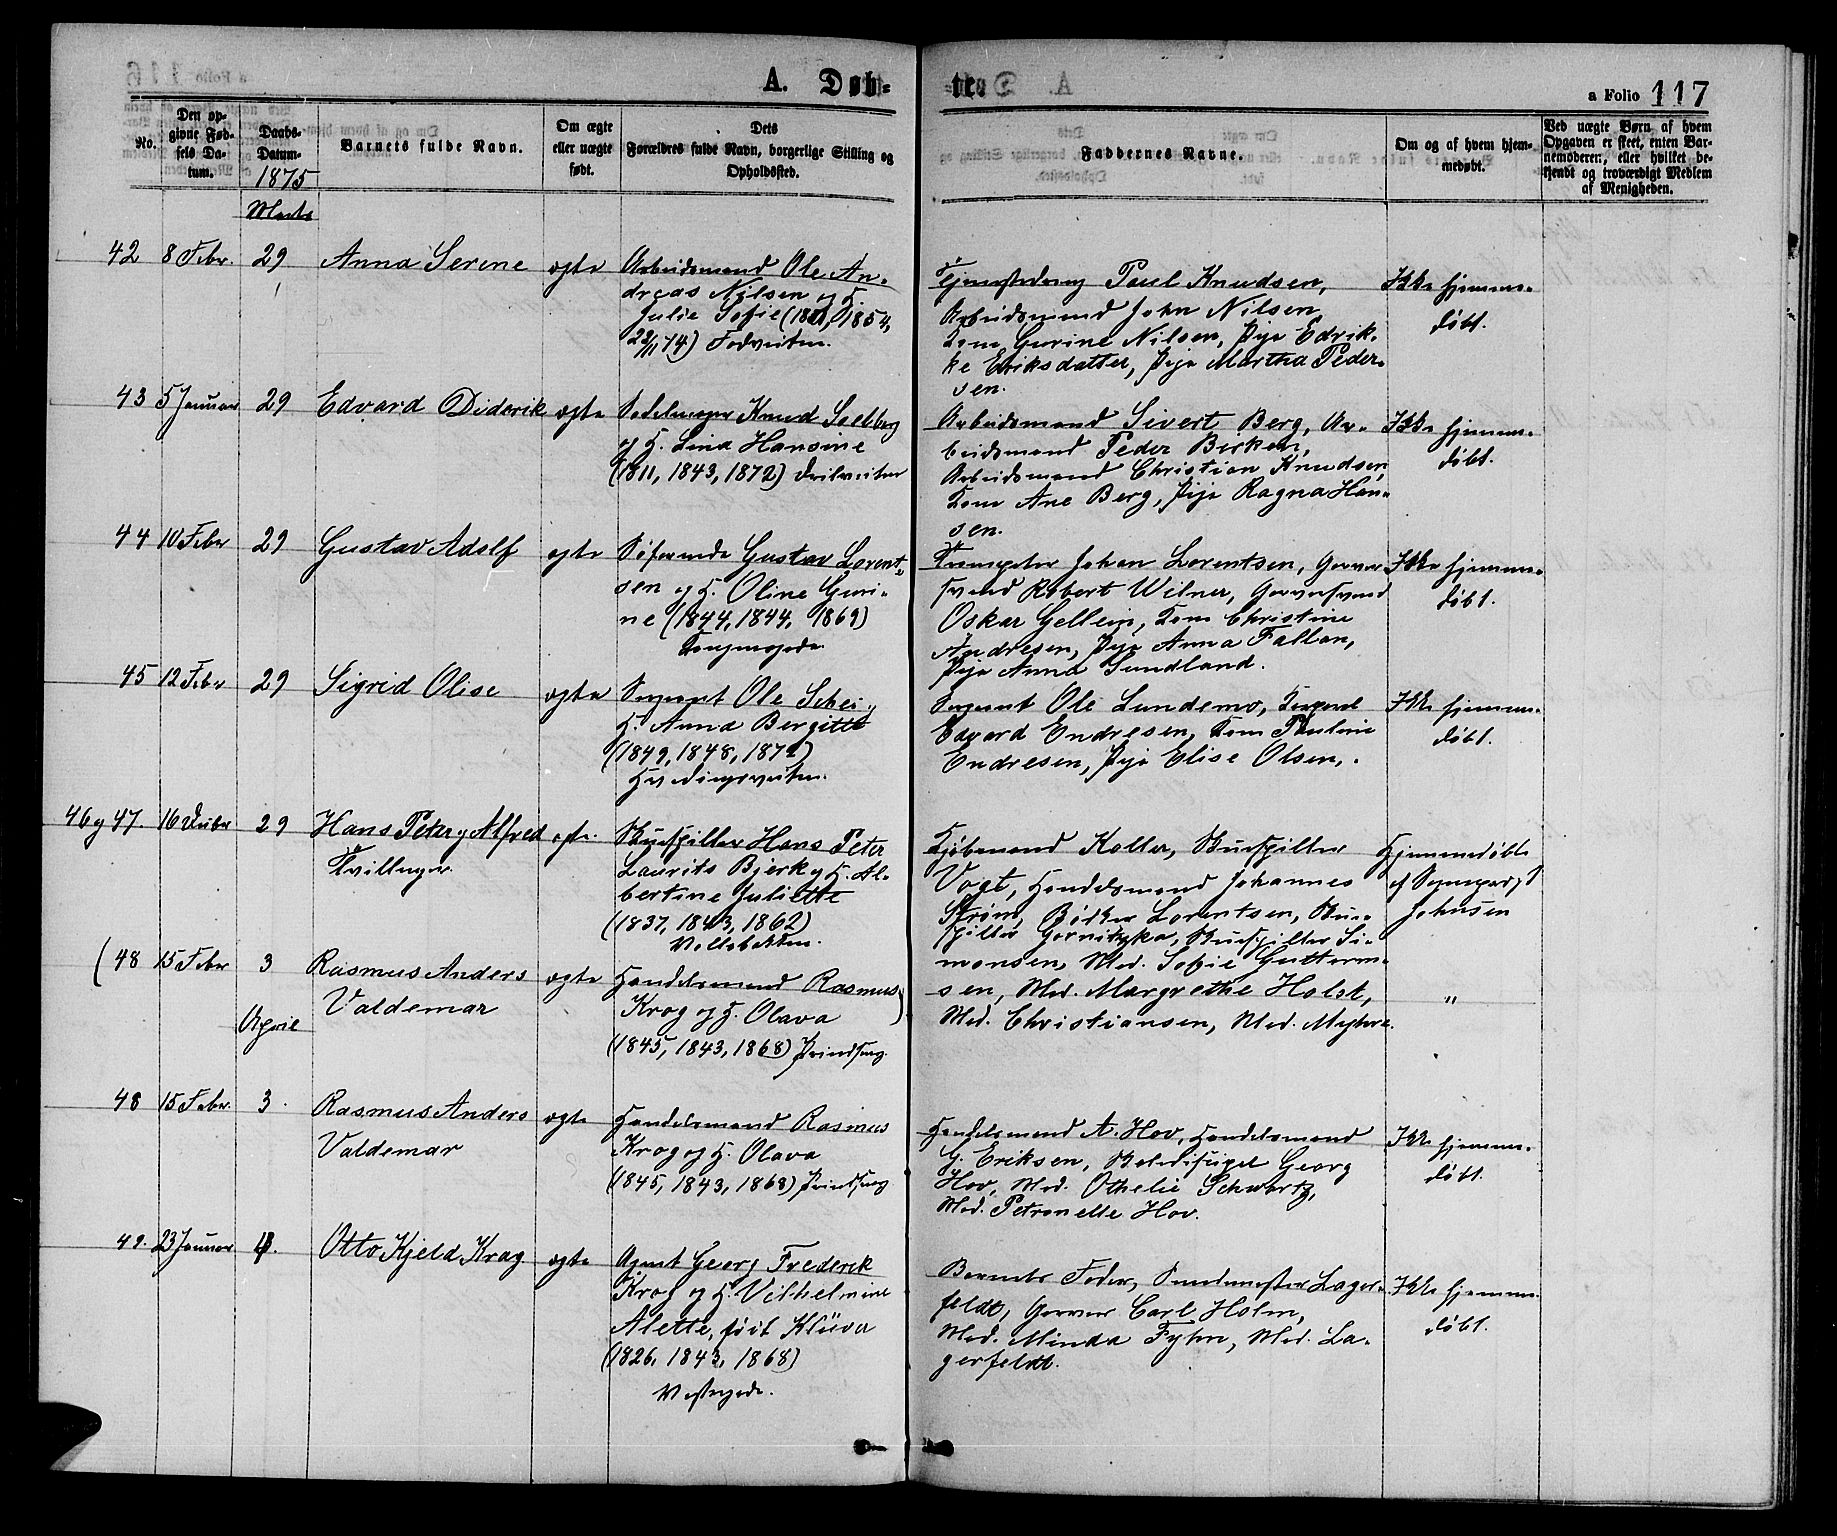 A. Døb-
te.
a Folio 117
No.
Den op-
givne Fød-
sels Da-
tum.
Daabs-
Datum.
1875
Barnets fulde Navn.
Om ægte
eller uægte
født.
Dets
Forældres fulde Navn, borgerlige Stilling og
Opholdssted.
Faddernes Navne.
Om og af hvem hjem-
medøbt.
Ved uægte Børn af hvem
Opgaven er skeet, enten Bar-
nemoderen, eller hvilket be-
kjendt og troværdigt Medlem
af Menigheden.
Marts
42 8 Febr. 29 Anna Serine ægte
Arbeidsmand Ole An-
dreas Nilsen og H.
Julie Sofie 1854,
22/11 74)
Paul Knudsen,
Arbeidsmand John Nilsen
Kone Gurine Nilsen, Pige Edrik-
ke Eriksdatter, Pige Martha Peder-
sen.
Ikke hjemme-
døbt.
43 5 Januar 29 Edvard Diderik ægte
Sadelmager Knud Solberg
og H. Lina Hansine
(1811, 1843, 1872)
Arbeidsmand Sivert Berg, Ar-
beidsmand Peder Birken,
Arbeidsmand Christian Knudsen,
Kone Ane Berg, Pige Ragna Han-
sen.
Ikke hjemme-
døbt.
44 10 Febr 29 Gustav Adolf ægte
Søfarende Gustav Lorent-
sen og H. Oline Guri-
ne (1844, 1844, 1869)
Johan Lorentsen, Garver
svend Robert Wilner, Garversvend
Oskar Gellein, Kone Christine
Andresen, Pige Anna Fallan,
Pige Anna Sundland.
Ikke hjemme-
døbt.
45 12 Febr 29 Sigrid Olise ægte
Sergeant Ole Schei og
H. Anna Bergitte
(1849, 1848, 1872)
Sergeant Ole Lundemo,
Edvard Endresen, Kone Pauline
Endresen, Pige Elise Olsen,
Ikke hjemme-
døbt.
46 og 47. 16 29 Hans Peter og Alfred ægte.
Tvillinger.
Skuespiller Hans Peter
Laurits Bjerk og H. Al-
bertine Juliette
(1837, 1843, 1862)
Vollabakken.
Kjøbmand Koller, Skuespiller
Vogt, Handelsmand Johannes
Strøm, Bødker Lorentsen, Skue-
spiller Skuespiller Si-
monsen, Mad. Sofie Guttorm-
sen, Mad. Margrethe Holst,
Mad. Christiansen, Mad.
Hjemmedøbte
af
Johnsen
(48 15 Febr 3 Rasmus Anders
Valdemar
ægte
Handelsmand Rasmus)
Krog og H. Olava
(1845, 1843, 1868)
"
April
48 15 Febr. 3. Rasmus Anders
Valdemar
ægte
Handelsmand Rasmus
Krog og H. Olava
(1845, 1843, 1868)
Handelsmand A. Hov, Handelsmand
G. Eriksen, Georg
Hov, Mad. Othelie Schwartz,
Mad. Petronelle Hov.
Ikke hjemme-
døbt.
49. 23 Januar Otto Kjeld Krag ægte
Agent Georg Frederik
Krog og H. Vilhelmine
Alette, født Klüver
(1826, 1843, 1868)
Barnets Fader, Lager-
feldt, Garver Carl Holm,
Mad. Minda Fyhn, Mad. La-
gerfeldt.
Ikke hjemme-
døbt.